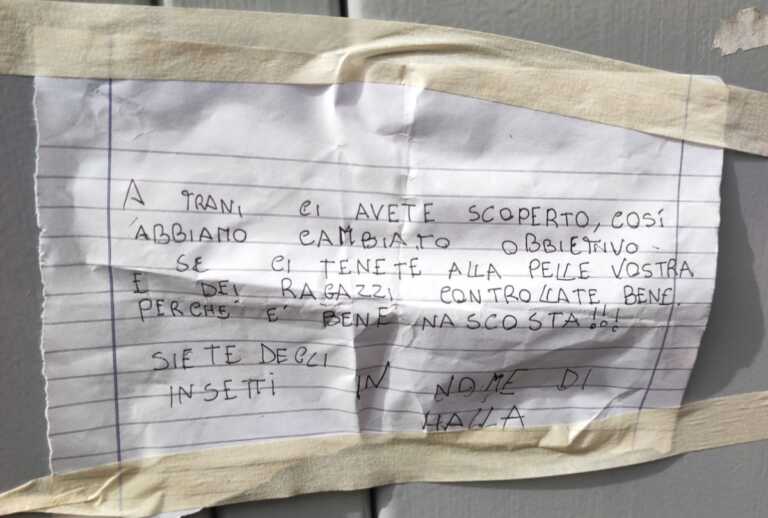 A TRANI CI AVETE SCOPERTO, COSÍ
ABBIAMO CAMBIATO OBBIETIVO.
SE CI TENETE ALLA PELLE VOSTRA
E DEI RAGAZZI CONTROLLATE BENE.
PERCHE' E' BENE NASCOSTA!!!
SIETE DEGLI
INSETTI IN NOME DI
HALLA